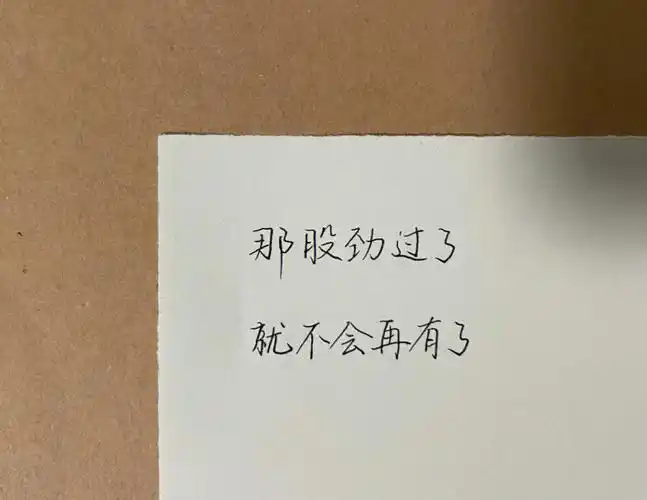 那股劲过了
就不会再有了